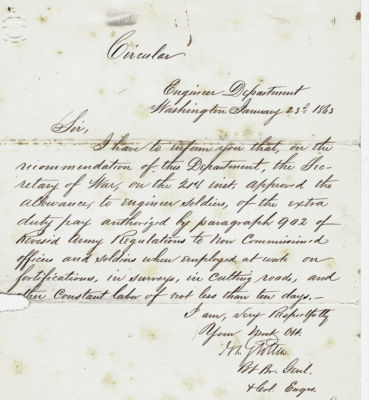 Circular
Engineer Department
Washington January 23d. 1863
Sir,
I have to inform you that, on the
recommendation of this Department, the Sec-
retary of War, on the 21st inst. approved the
allowance, to engineer soldiers, of the extra
duty pay authorized by paragraph 902 of
Revised Army Regulations to Non Commissioned
officers and soldiers when employed at work on
fortifications, in surveys, in cutting roads, and
other Constant labor of not less than ten days,—
I am, very Respectfully
Your Most Obt.
Jos. G Totten
Bt Br. Genl.
& Col. Engrs.